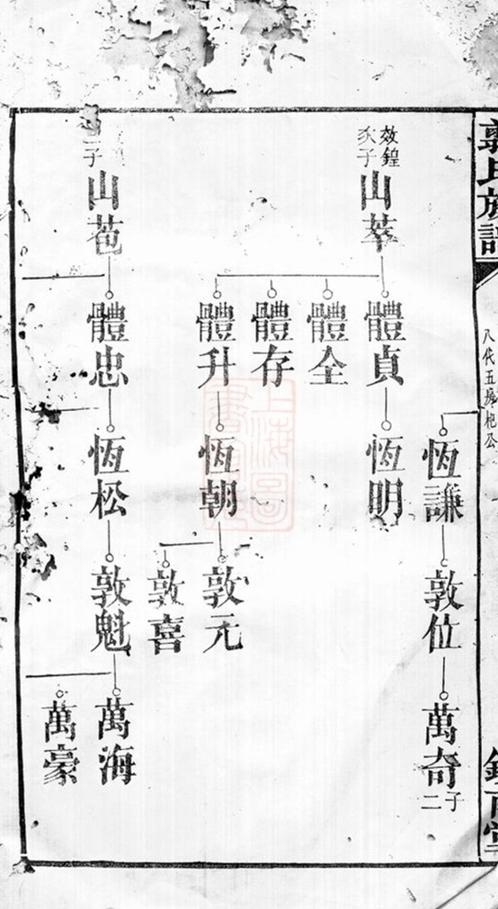 郭氏族譜
八代五房
恆謙
敦位
萬奇
二子
效鍠
次子
山萃
體貞
恆明
體全
體存
體升
恆朝
敦元
敦喜
子
山苞
體忠
恆松
敦魁
萬海
萬豪
上海圖書館